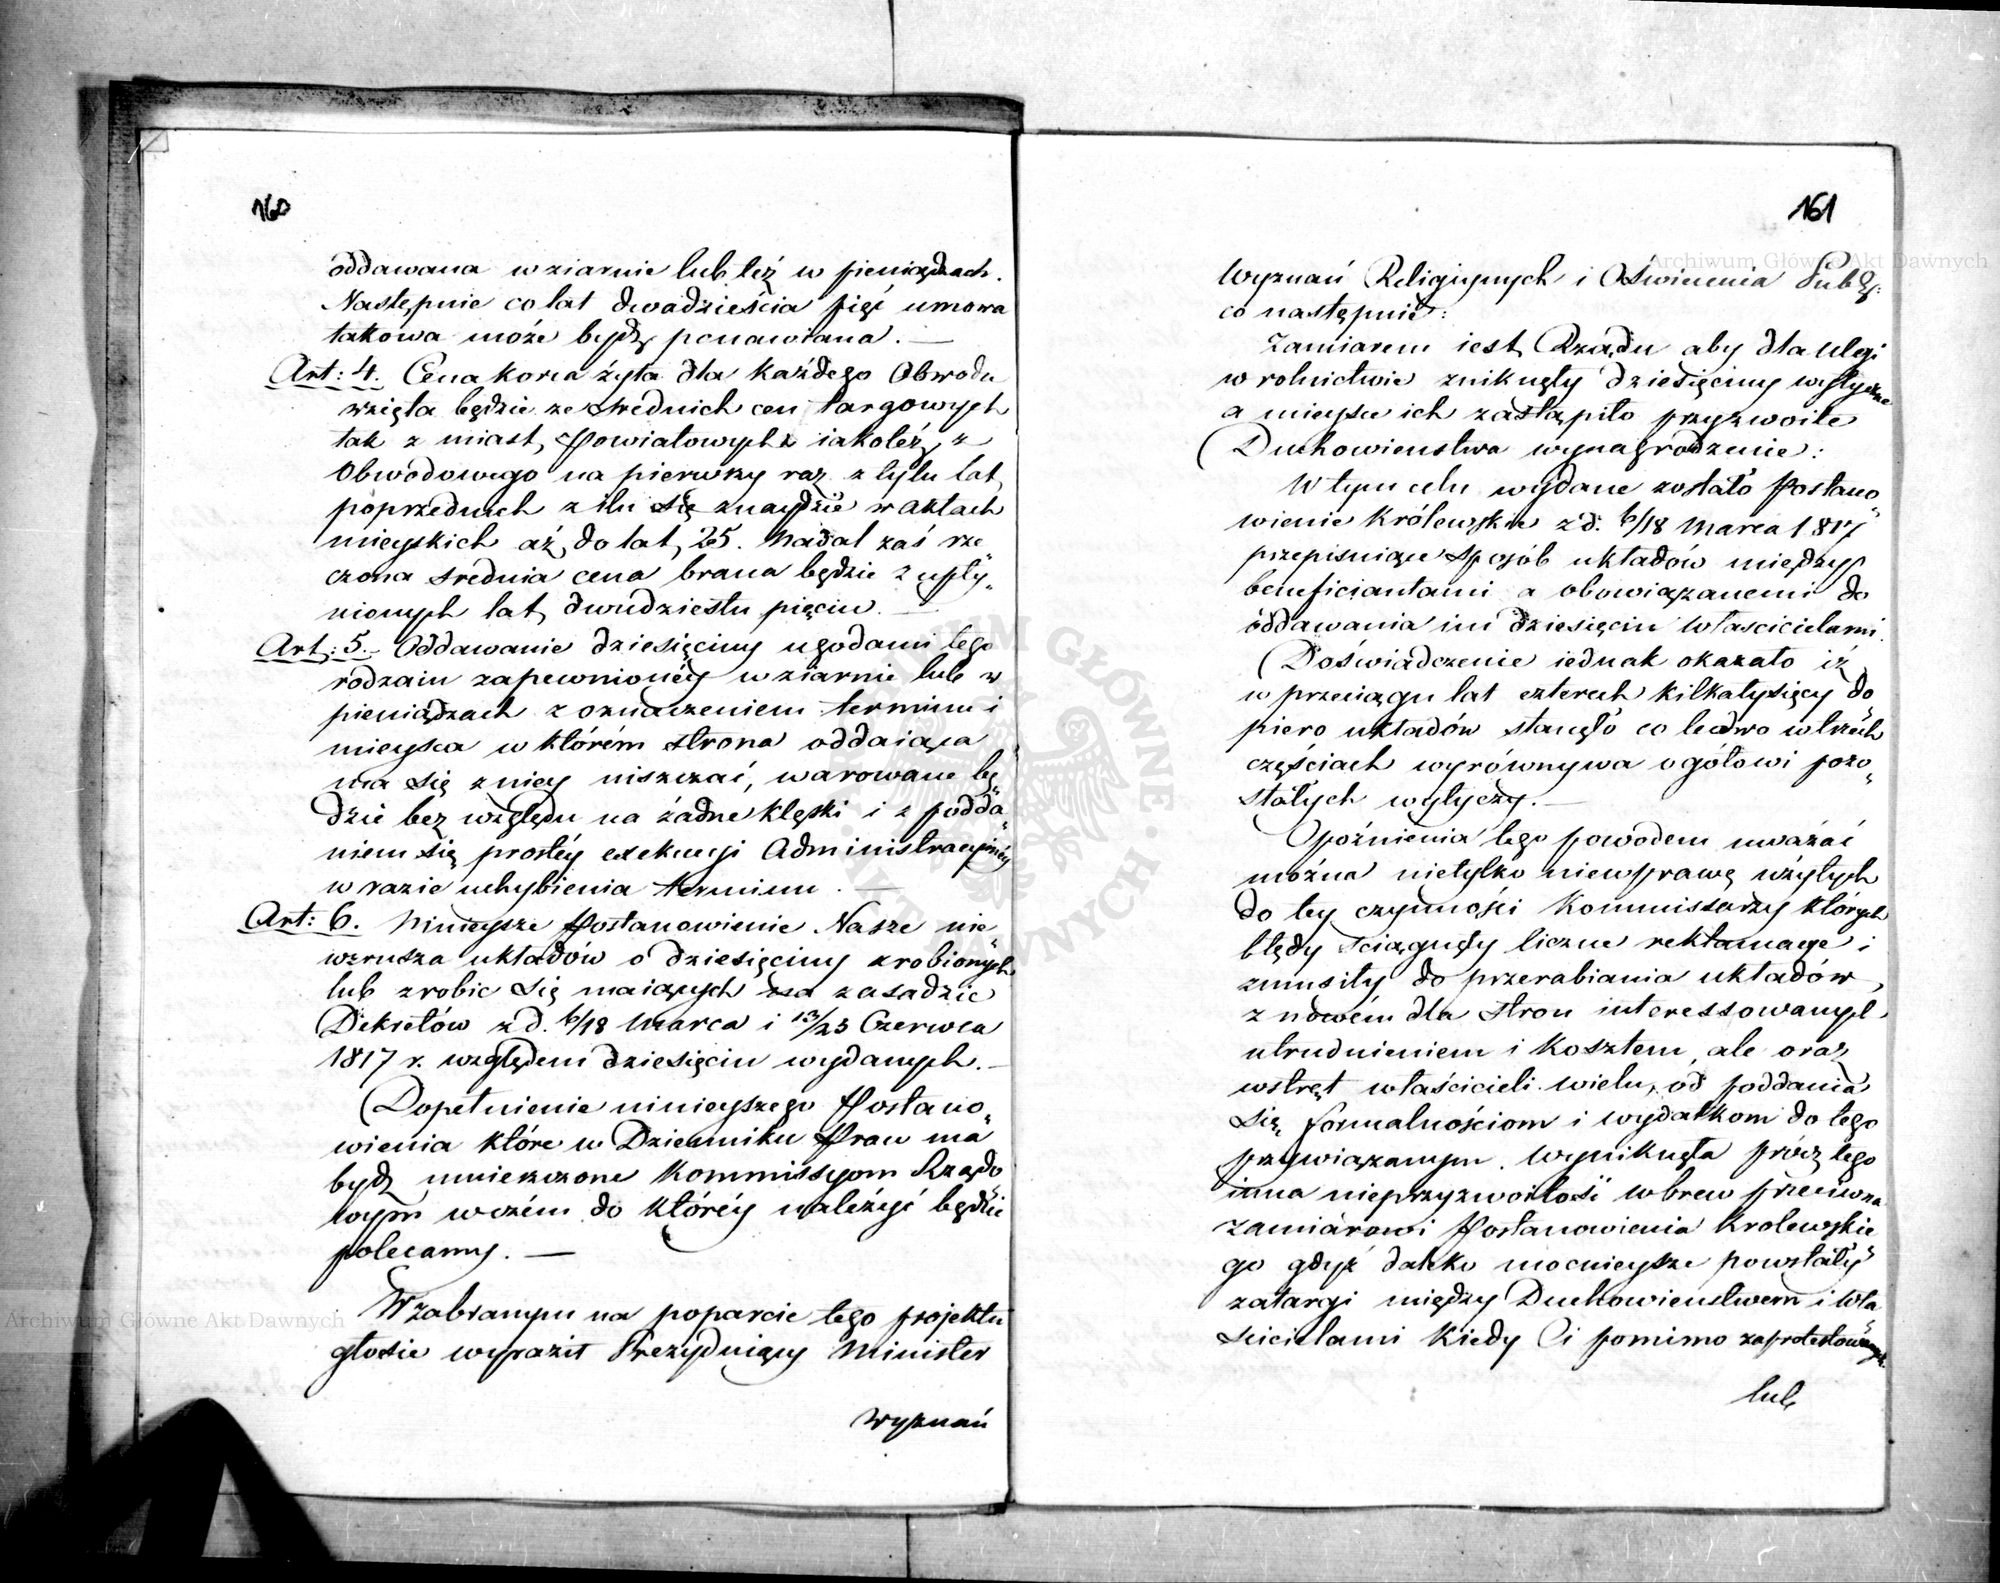 160
oddawana w ziarnie lub też w pieniądzach.
Następnie co lat dwadzieścia pięć umowa
takowa może bydź ponawiana. —
Art: 4. Cena korca żyta dla każdego Obwodu
wzięta będzie ze średnich cen targowych
tak z miast Powiatowych iakoteż z
Obwodowego na pierwszy raz z tylu lat
poprzednich z ilu się znaydzie w aktach
mieyskich aż do lat 25. Nadal zaś rze„
czona średnia cena brana będzie z upły„
nionych lat dwudziestu pięciu. —
Art: 5. Oddawanie dziesięciny ugodami tego
rodzaiu zapewnionéy w ziarnie lub w
pieniądzach z oznaczeniem terminu i
mieysca w którém strona oddaiąca
ma się z niey niszczać, warowane bę„
dzie bez względu na żadne klęski i z podda„
niem się prostéy exekucyi Administracyinéy
w razie uchybienia terminu. —
Art: 6. Ninieysze Postanowienie Nasze nie„
wzrusza układów o dziesięciny zrobionych
lub zrobic się maiących na zasadzie
Dekretów z d. 6/18 Marca i 13/25 Czerwca
1817 r. względem dziesięcin wydanych. —
Dopełnienie ninieyszego Postano„
wienia które w Dzienniku Praw ma
bydź umieszczone Kommissyom Rządo„
wym w czém do któréy należyć będzie
polecamy. —
W zabranym na poparcie tego projektu
głosie wyraził Prezyduiący Minister
Wyznań
161
Wyznań Religiynych i Oświecenia Publ:
co następuie:
Zamiarem iest Rządu aby dla ulgi
w rolnictwie zniknęły dziesięciny wytyczne
a mieysce ich zastąpiło przyzwoite
Duchowieństwa wynagrodzenie:
W tym celu wydane zostało Postano„
wienie Królewskie z d. 6/18 Marca 1817
przepisuiące sposób układów między
beneficiantami a obowiązanemi do
oddawania im dziesięcin właścicielami.
Doświadczenie iednak okazało iż
w przeciągu lat czterech kilkatysięcy do„
piero układów stanęło co ledwo w trzech
częściach wyrównywa ogółowi pozo„
stałych wytyczy. —
Opoźnienia tego powodem uważać
można nietylko niewprawę użytych
do tey czynności Kommissarzy których
błędy ściągnęły liczne reklamacye i
zmusiły do przerabiania układów,
z nowém dla stron interessowanych
utrudnieniem i kosztem, ale oraz
wstręt właścicieli wielu, od poddania
się formalnościom i wydatkom do tego
przywiązanym. Wyniknęła prócz tego
inna nieprzyzwoitość wbrew przeciwna
zamiarowi Postanowienia Krolewskie„
go gdyż daleko mocnieysze powstały
zatargi między Duchowieństwem i Wła„
ścicielami kiedy Ci pomimo zaprotestowanych
lub
Archiwum Główne Akt Dawnych
Archiwum Główne Akt Dawnych
ARCHIWUM GŁÓWNE AKT DAWNYCH